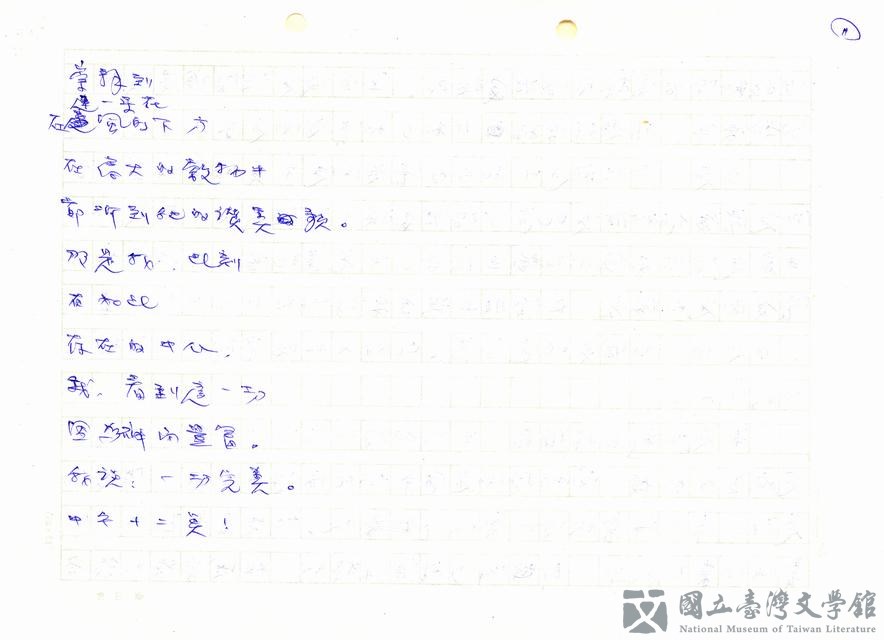 11
掌握到
這一平在
在風的下方
在偉大的穀物中
都聽到他的讚美歌。
那是我,此刻
在如此
存在的中心,
我,看到這一切
因精神而豐富。
我說:一切完美。
中午十二點!
國立臺灣文學館
National Museum of Taiwan Literature